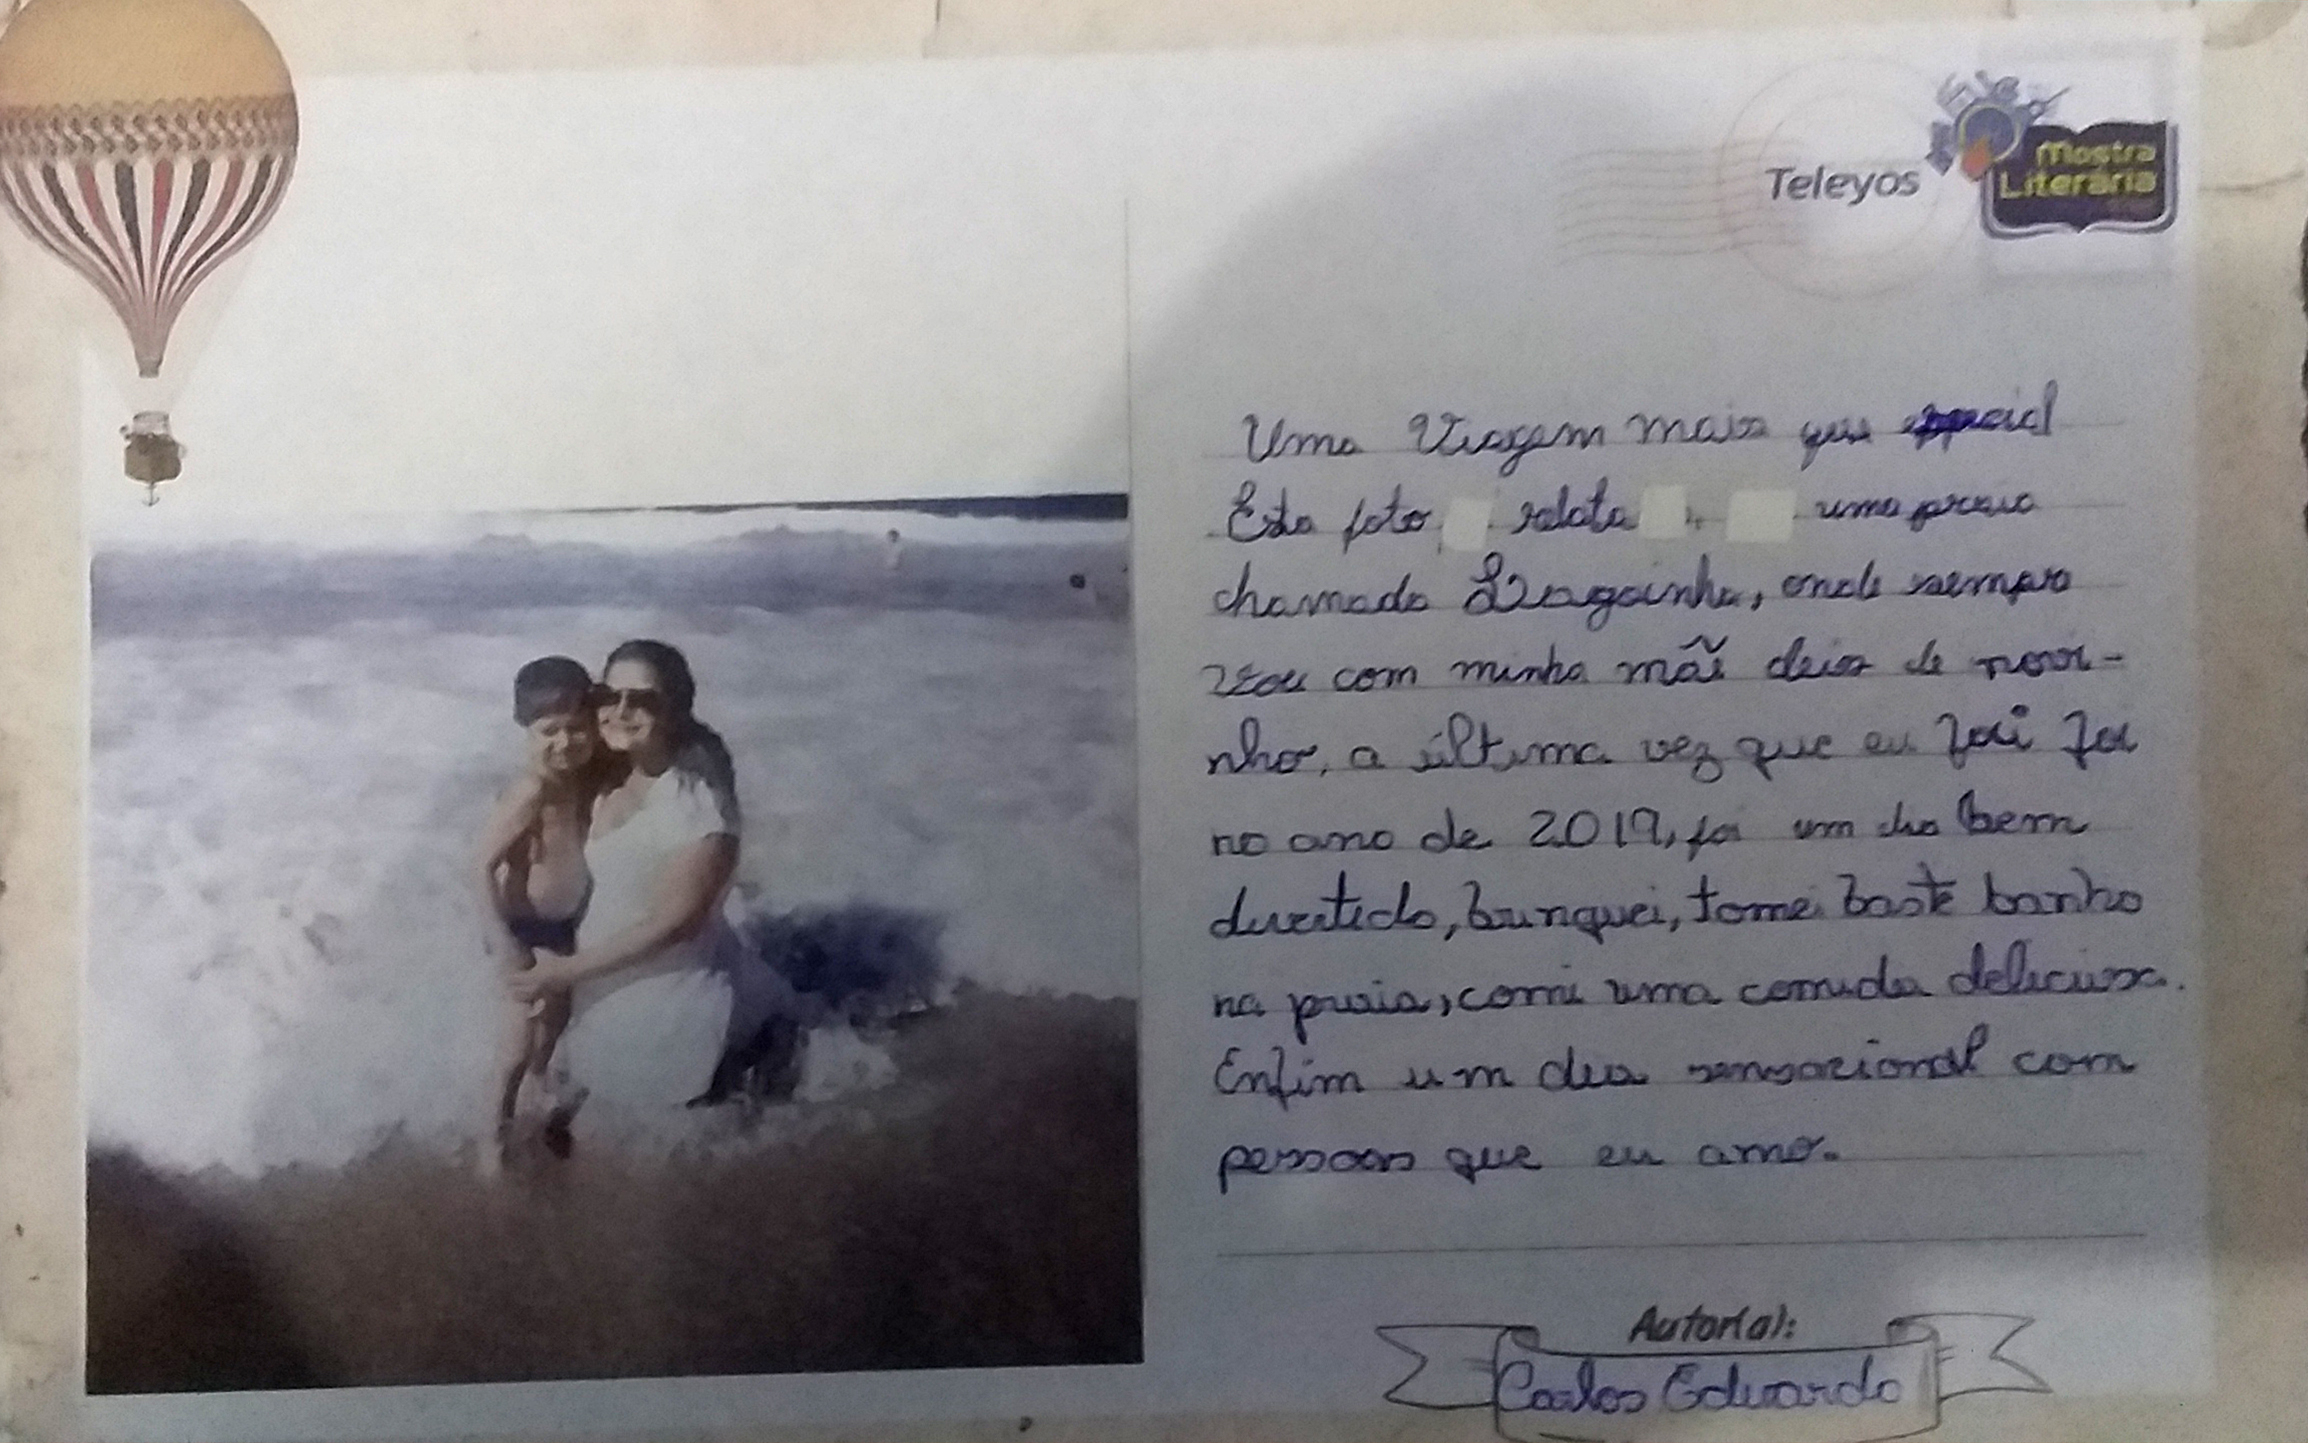 Teleyos
Mostra
Literária
Uma Viagem mais que especial
Esta foto relata uma praia
chamada Lagoinha, onde sempre
vou com minha mãe deis de novi-
nho, a última vez que eu foi foi
no ano de 2019, foi um dia bem
divertido, brinquei, tomei baste banho
na praia, comi uma comida deliciosa.
Enfim um dia sensacional com
pessoas que eu amo.
Autor(a):
Carlos Eduardo